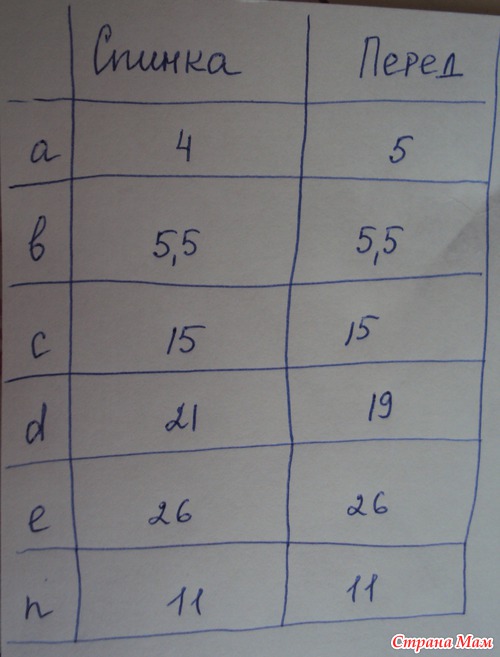 Спинка Перед
a 4 5
b 5,5 5,5
c 15 15
d 21 19
e 26 26
n 11 11
Страна Мам